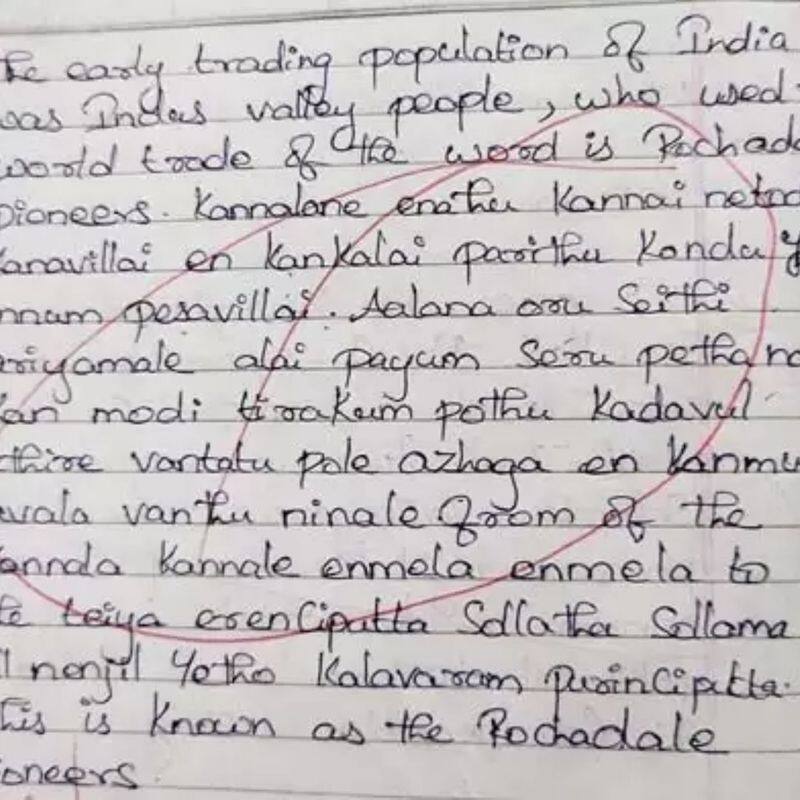 he early trading population of India
was Indus valley people, who used
world trade of the word is Rochad
pioneers. Kannalane enathu Kannai netro
Kanavillai en Kankalai parithu Kondu y
innam pesavillai. Aalana oru Seithi
ariyamale alai payum Soru petha
kan modi tirakum pothu Kadavul
ethire vantatu pole azhaga en Kanmu
avala vanthu ninale from of the
kannda Kannale enmela enmela to
teiya erenCiputta Sollatha Sollama
nenjil Yetho Kalavaram purinCiputta.
This is Known as the Rochadale
ioneers.